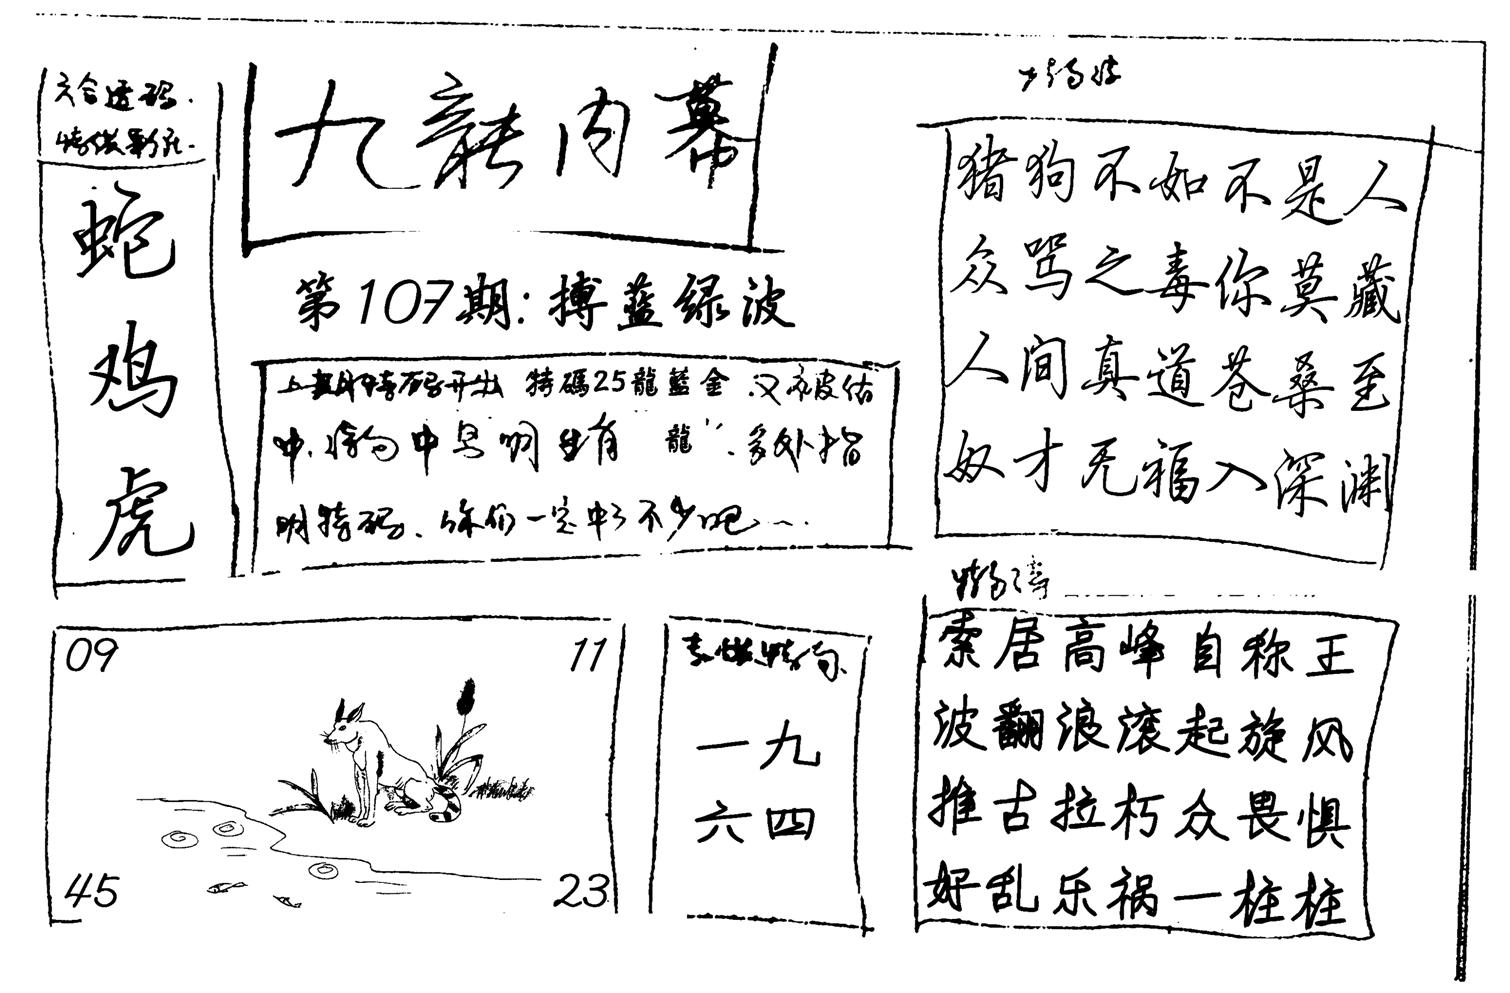 六合透码.
蛇
鸡
虎
九龍内幕
第107期:搏蓝绿波
上期特码开出 特碼25龍藍金.又被估
中. 中 明 有"龍". 外指
明特码、你们一定中了不少吧…
猪狗不如不是人
众骂之毒你莫藏
人间真道苍桑至
奴才无福入深渊
索居高峰自称王
波翻浪滚起旋风
推古拉朽众畏惧
好乱乐祸一柱柱
09
11
45
23
一九
六四